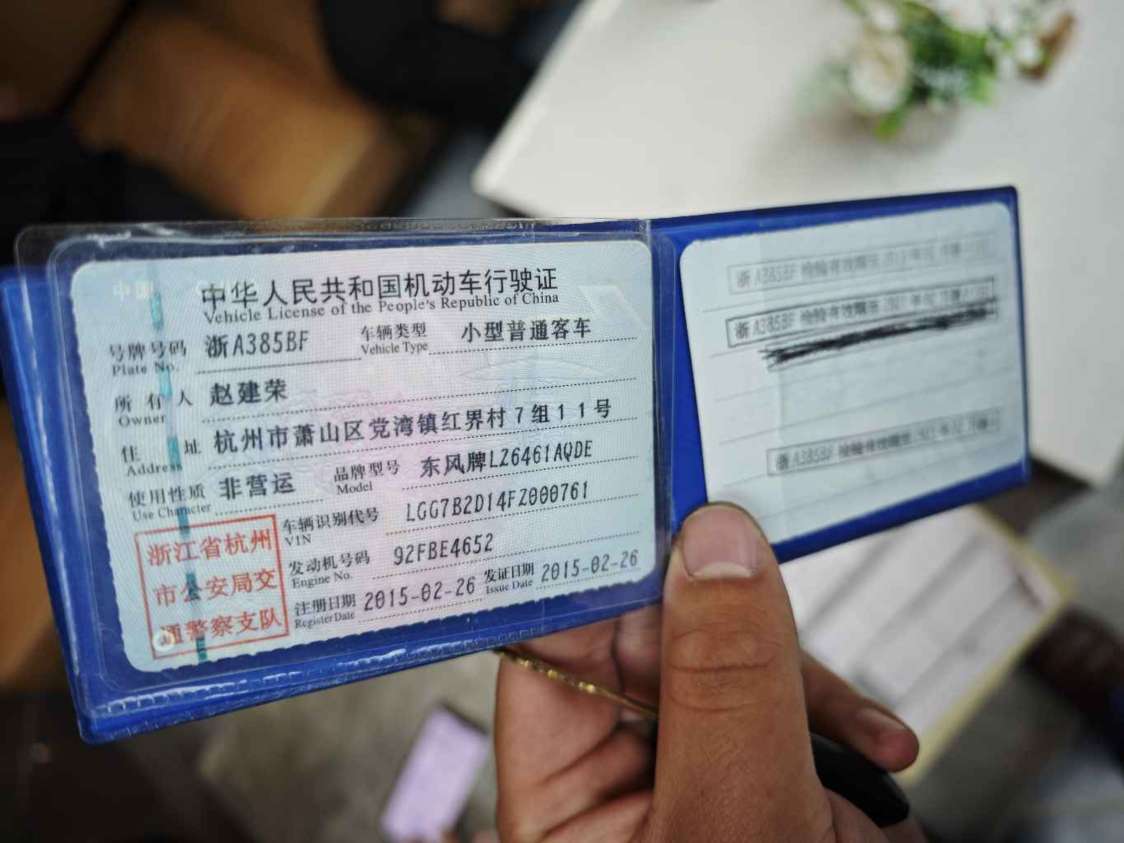 中华人民共和国机动车行驶证
Vehicle License of the People's Republic of China
号牌号码 浙A385BF 车辆类型 小型普通客车
Plate No. Vehicle Type
所有人 赵建荣
Owner
住址 杭州市萧山区党湾镇红界村7组11号
Address
使用性质 非营运 品牌型号 东风牌LZ6461AQDE
Use Character Model
车辆识别代号 LGG7B2D14FZ000761
VIN
发动机号码 92FBE4652
Engine No.
注册日期 2015-02-26 发证日期 2015-02-26
Register Date Issue Date
浙江省杭州
市公安局交
通警察支队
浙A385BF 检验有效期至
浙A385BF 检验有效期至
浙A385BF 检验有效期至